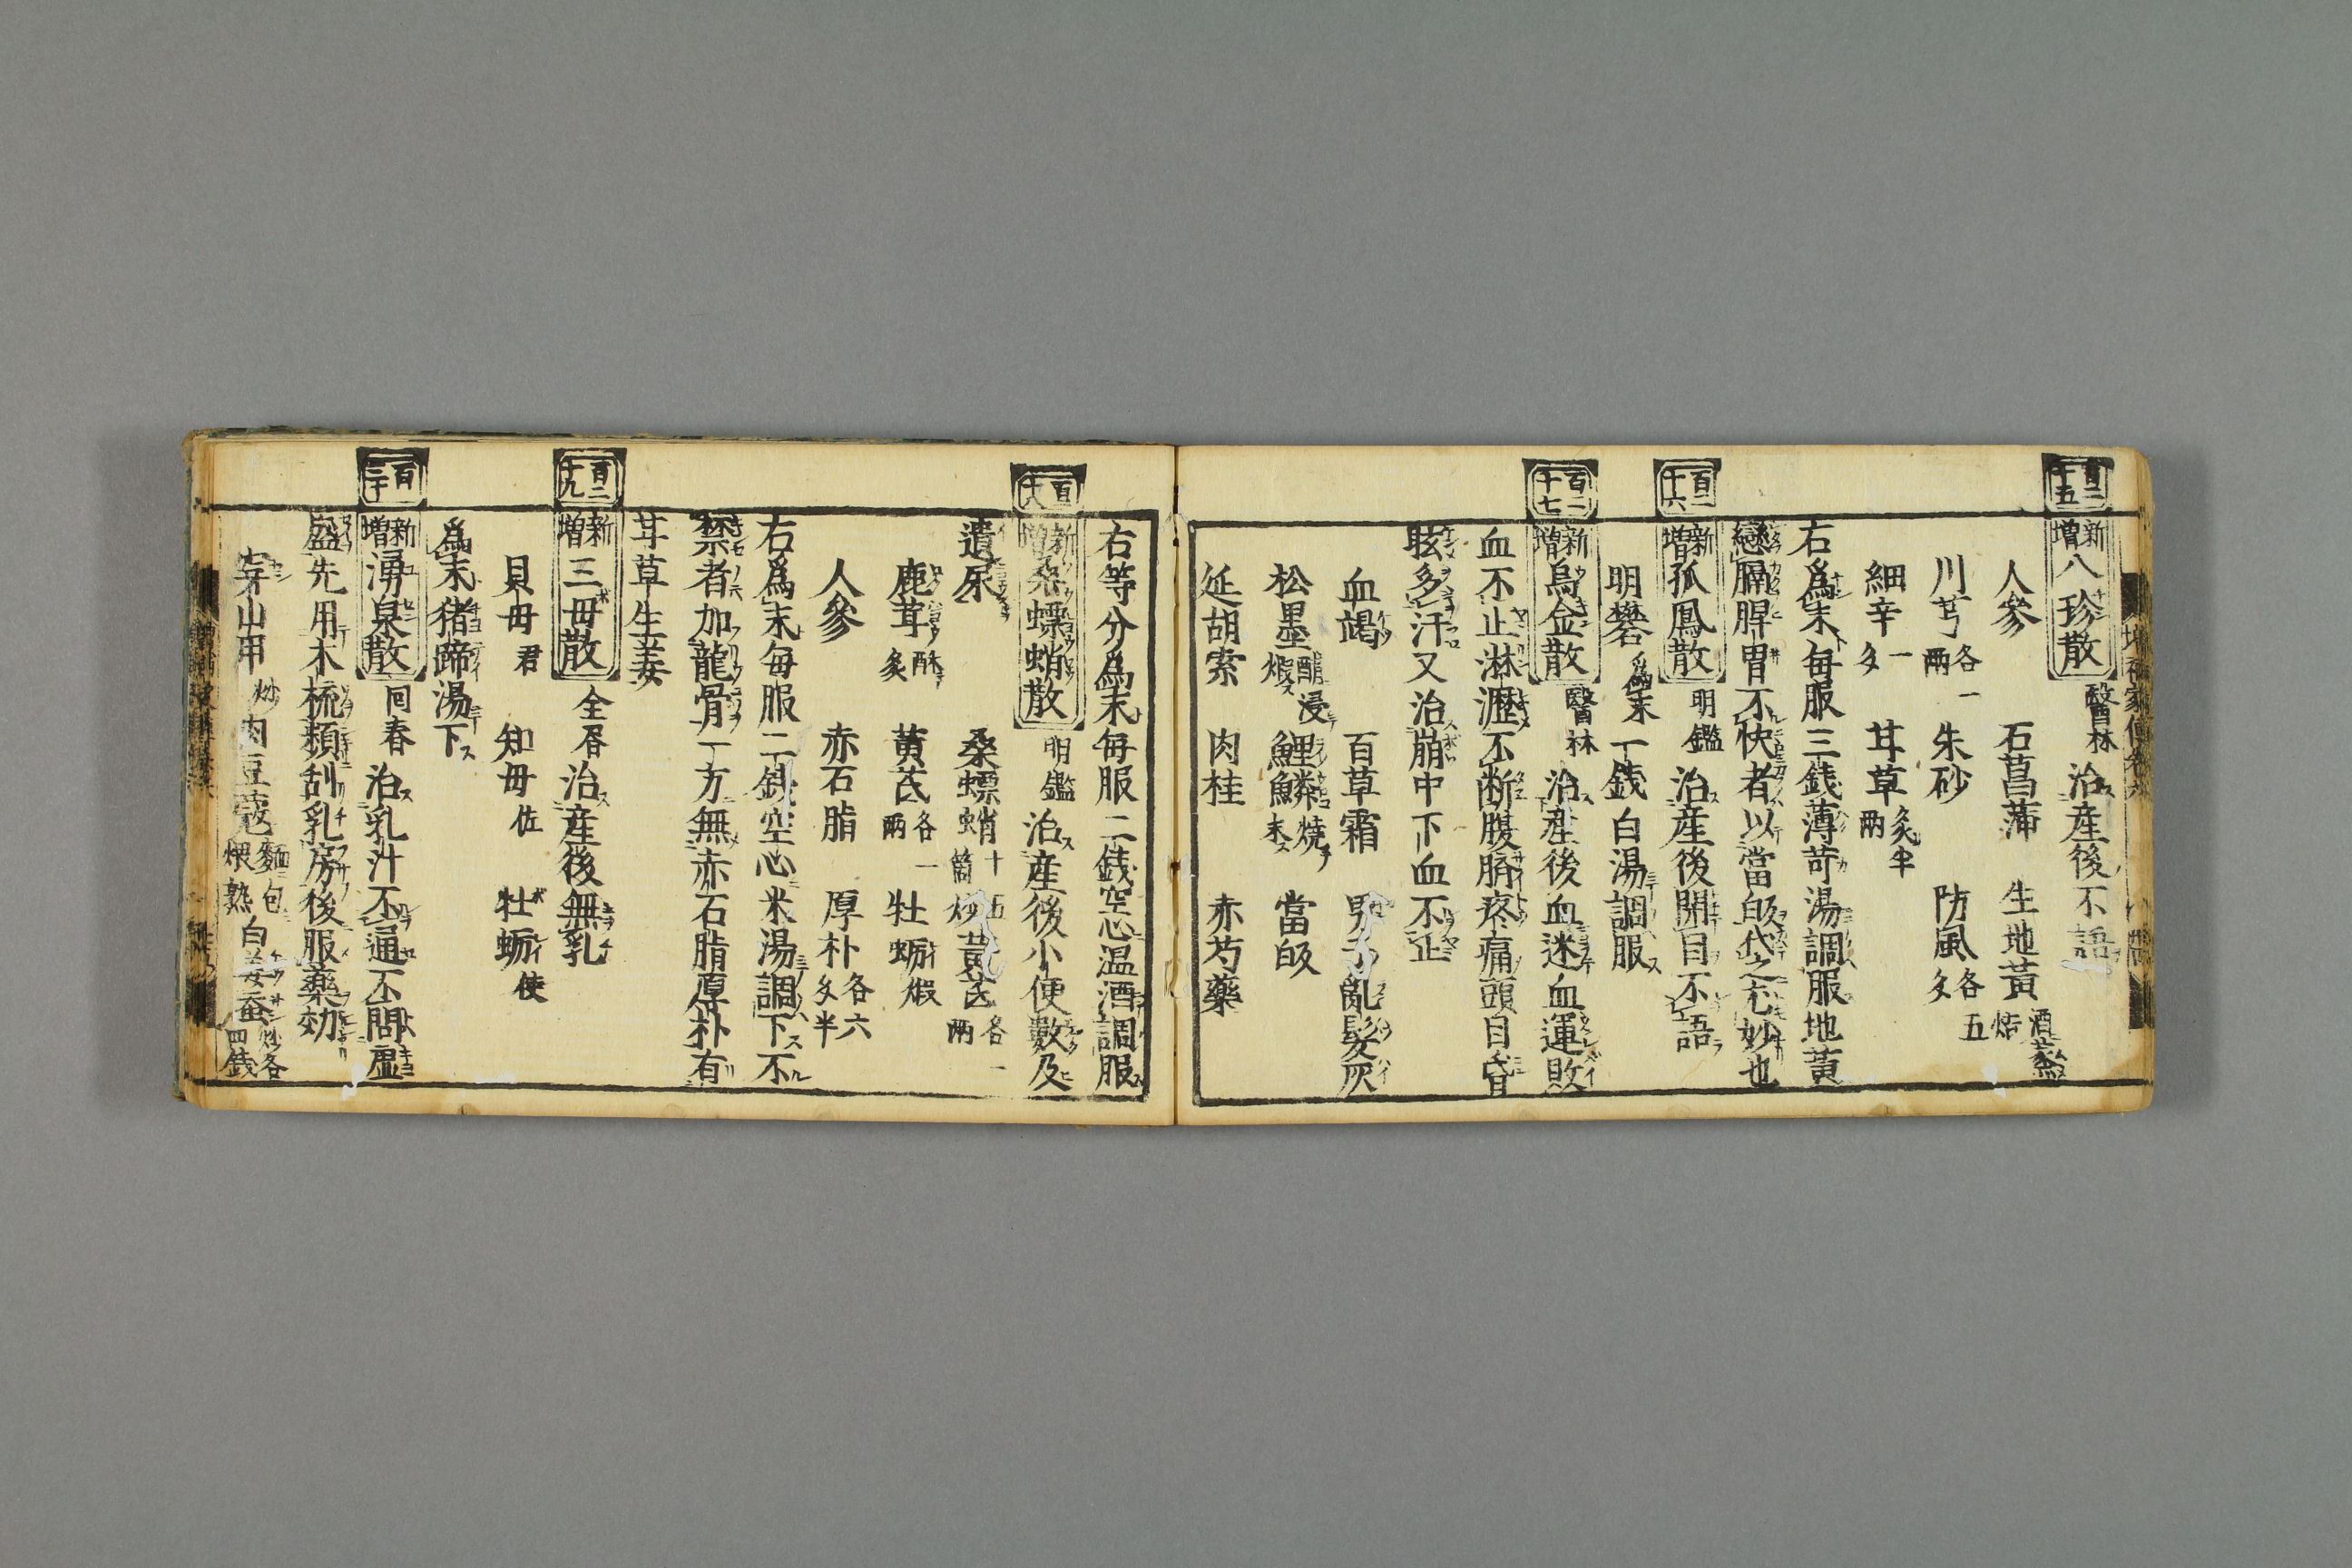 百二十五
新増 八珍散 醫林 治産後不語
人參 石菖蒲 生地黄 酒蒸焙
川芎 各一兩 朱砂 防風 各五匁
細辛 一匁 甘草 炙半兩
右爲末毎服三錢薄荷湯調服地黄
戀膈脾胃不快者以當皈代之尤妙也
百二十六
新増 孤鳳散 明鑑 治産後閉目不語
明礬 爲末 一錢白湯調服
百二十七
新増 烏金散 醫林 治産後血迷血運敗
血不止淋瀝不断腹臍疼痛頭目昏
眩多汗又治崩中下血不止
血竭 百草霜 男子亂髮灰
松墨 醋浸煅 鯉鱗 焼末 當皈
延胡索 肉桂 赤芍藥
右等分爲末毎服二錢空心温酒調服
新増 桑螵蛸散 明鑑 治産後小便數及
遺尿 桑螵蛸 十五箇炒 黄芪 各一兩
鹿茸 酥炙 黄芪 各一兩 牡蛎 煅
人參 赤石脂 厚朴 各六匁半
右爲末毎服二錢空心米湯調下不
禁者加龍骨一方無赤石脂厚朴有
甘草生姜
百二十九
新増 三母散 仝昏 治産後無乳
貝母 君 知母 佐 牡蛎 使
爲末猪蹄湯下
百三十
新増 湧泉散 回春 治乳汁不通不問虚
盛先用木梳類刮乳房後服藥効
穿山甲 炒 肉豆蔲 麵包煨熟 白姜蚕 炒各四錢